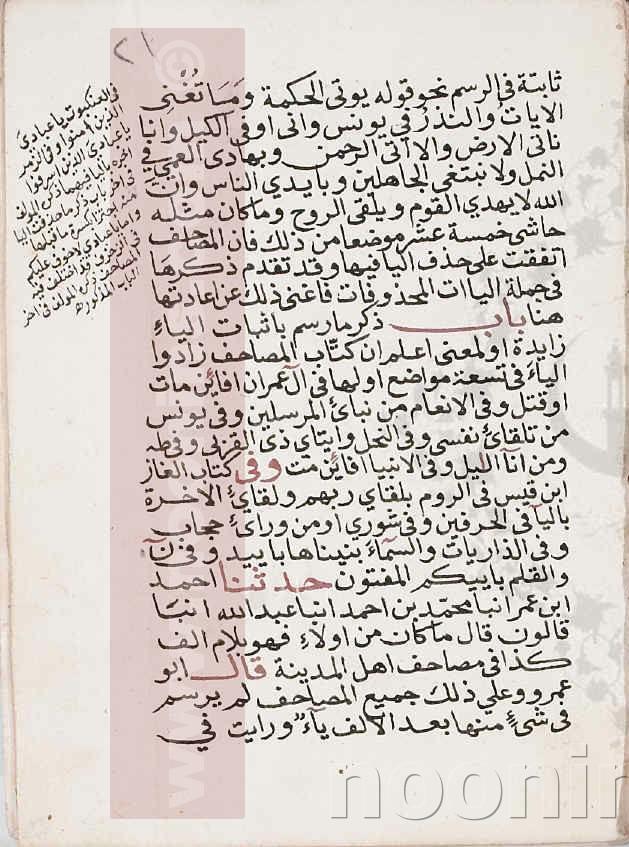 ٢١
ثابتة في الرسم نحو قوله يوتى الحكمة وما تُغني
الايات والنذر في يونس واني اوفي الكيل وانا
ناتي الارض والا اتى الرحمن وبهادى العمى في
النمل ولا نبتغى الجاهلين وبايدي الناس وان
الله لا يهدي القوم ويلقى الروح وما كان مثله
حاشى خمسة عشر موضعا من ذلك فان المصاحف
اتفقت على حذف اليا فيها وقد تقدم ذكرها
في جملة الياات المحذوفات فاغنى ذلك عن اعادتها
هنا باب ذكر ما رسم باثبات الياء
زايدة او لمعنى اعلم ان كتّاب المصاحف زادوا
الياء في تسعة مواضع اولها في ال عمران افاين مات
او قتل وفي الانعام من نباي المرسلين وفي يونس
من تلقاي نفسى وفي النحل وايتاي ذي القربى وفي طه
ومن اناي الليل وفي الانبيا افاين مت وفي كتاب الغاز
ابن قيس في الروم بلقاي ربهم ولقاي الاخرة
باليا في الحرفين وفي شوري او من وراي حجاب
وفي الذاريات والسماء بنيناها باييد وفي ن
والقلم باييكم المفتون حدثنا احمد
ابن عمر انبا محمد بن احمد انبا عبد الله انبا
قالون قال ما كان من اولاء فهو بلام الف
كذا في مصاحف اهل المدينة قال ابو
عمرو وعلى ذلك جميع المصاحف لم يرسم
في شيء منها بعد الالف ياء ورايت في
في العنكبوت يا عبادي
الذين امنوا وفي الزمر
يا عبادي الذين اسرفوا
noonin